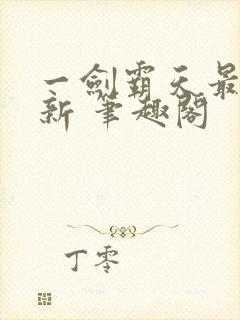 一劍霸天最
新 筆趣閣
丁零